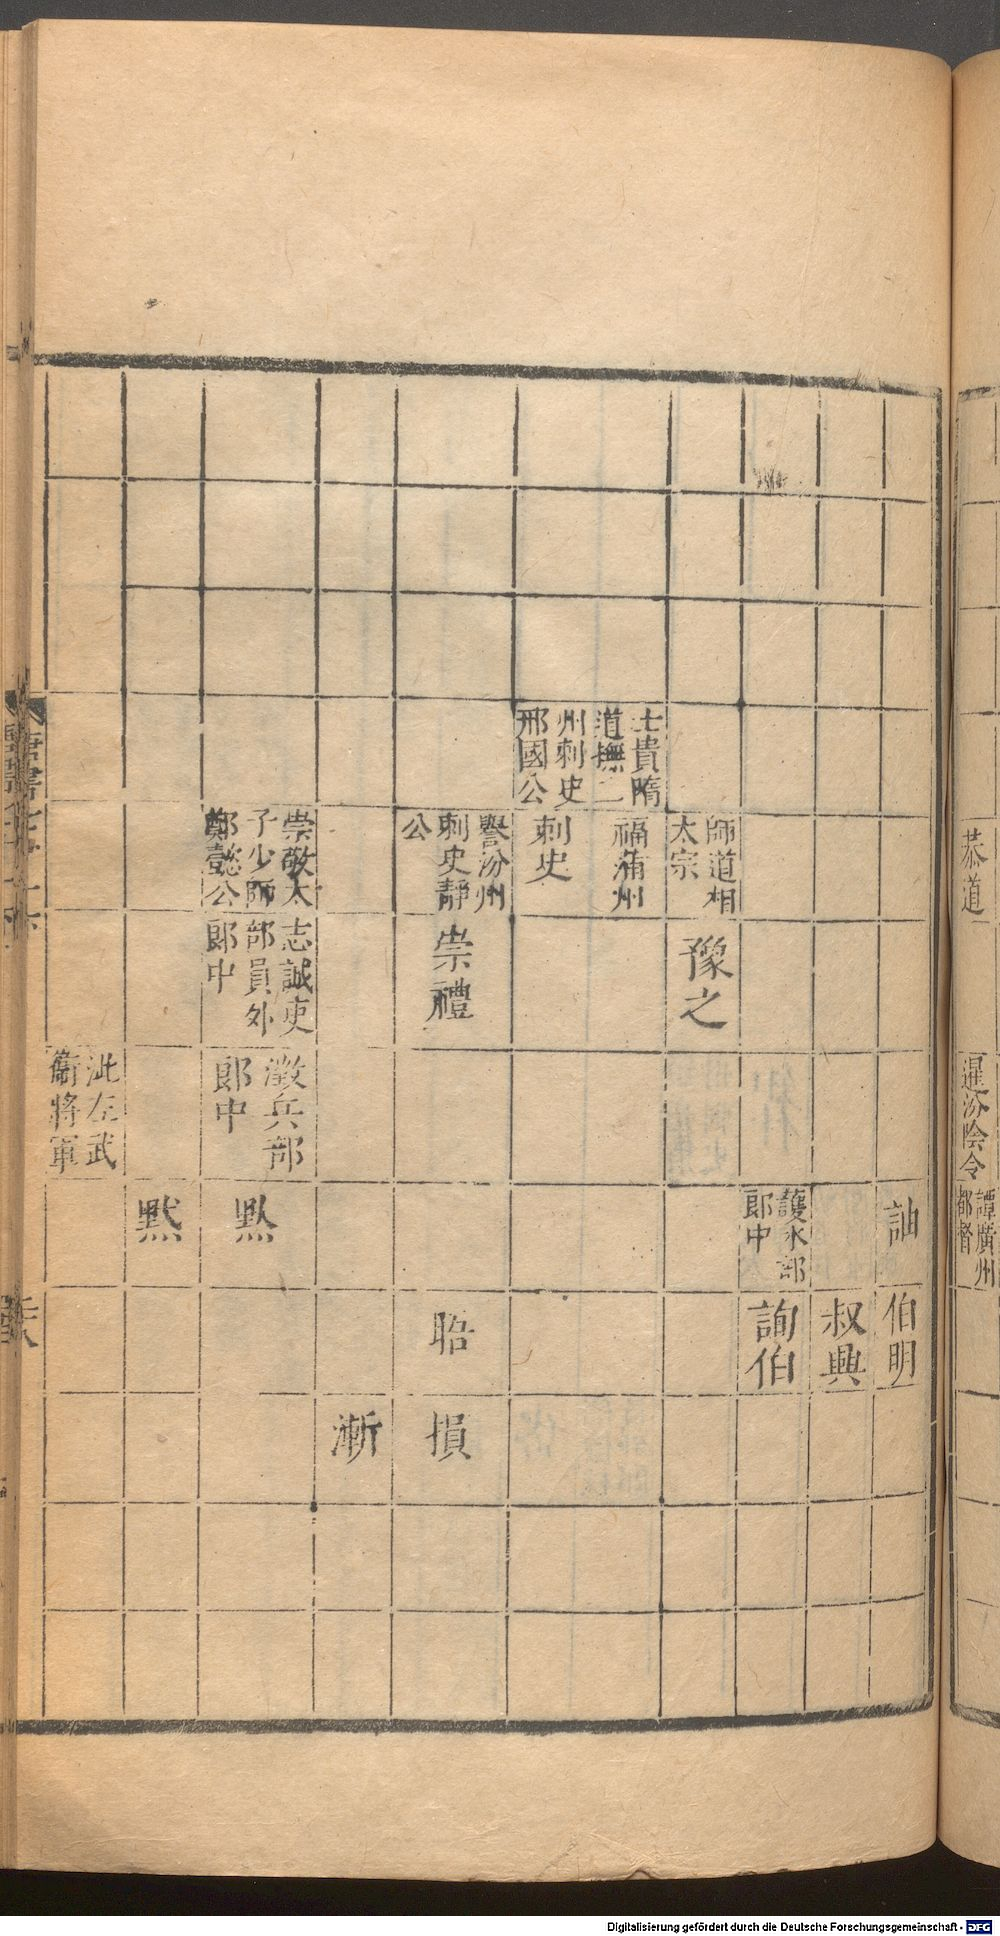 恭道
暹汾陰令
譚廣州
都督
詘
伯明
叔興
護水部
郎中
詢伯
師道相
太宗
豫之
士貴隋
道撫二
州刺史
邢國公
福蒲州
刺史
譽汾州
刺史靜
公
崇禮
晤
損
漸
崇敬太
子少師
鄭懿公
志誠吏
部員外
郎中
澂兵部
郎中
點
默
泚左武
衞將軍
唐書
Digitalisierung gefördert durch die Deutsche Forschungsgemeinschaft - DFG